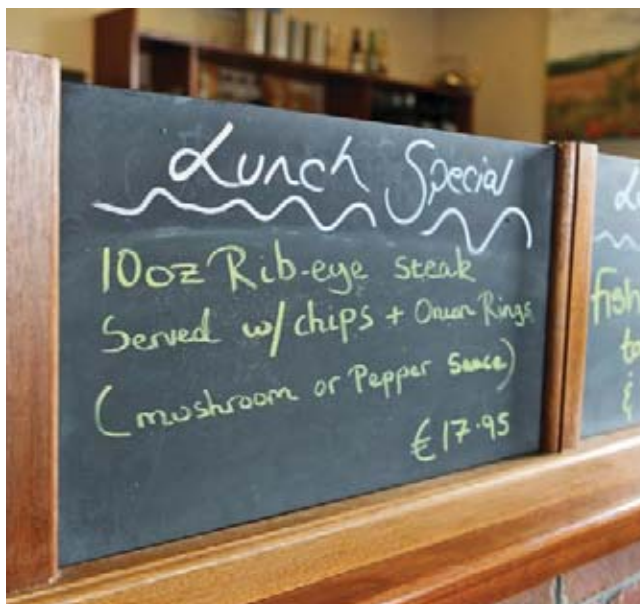 Lunch Special
10oz Rib-eye steak
Served w/ chips + Onion Rings
(mushroom or Pepper Sauce)
€17.95
fish